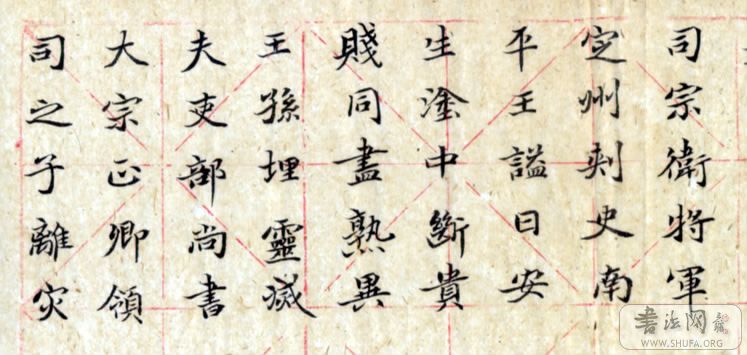 司宗衛將軍
定州刺史南
平王謚曰安
生塗中斷貴
賤同盡熟異
王孫埋靈滅
夫吏部尚書
大宗正卿領
司之子離灾
書法网
WWW.SHUFA.ORG